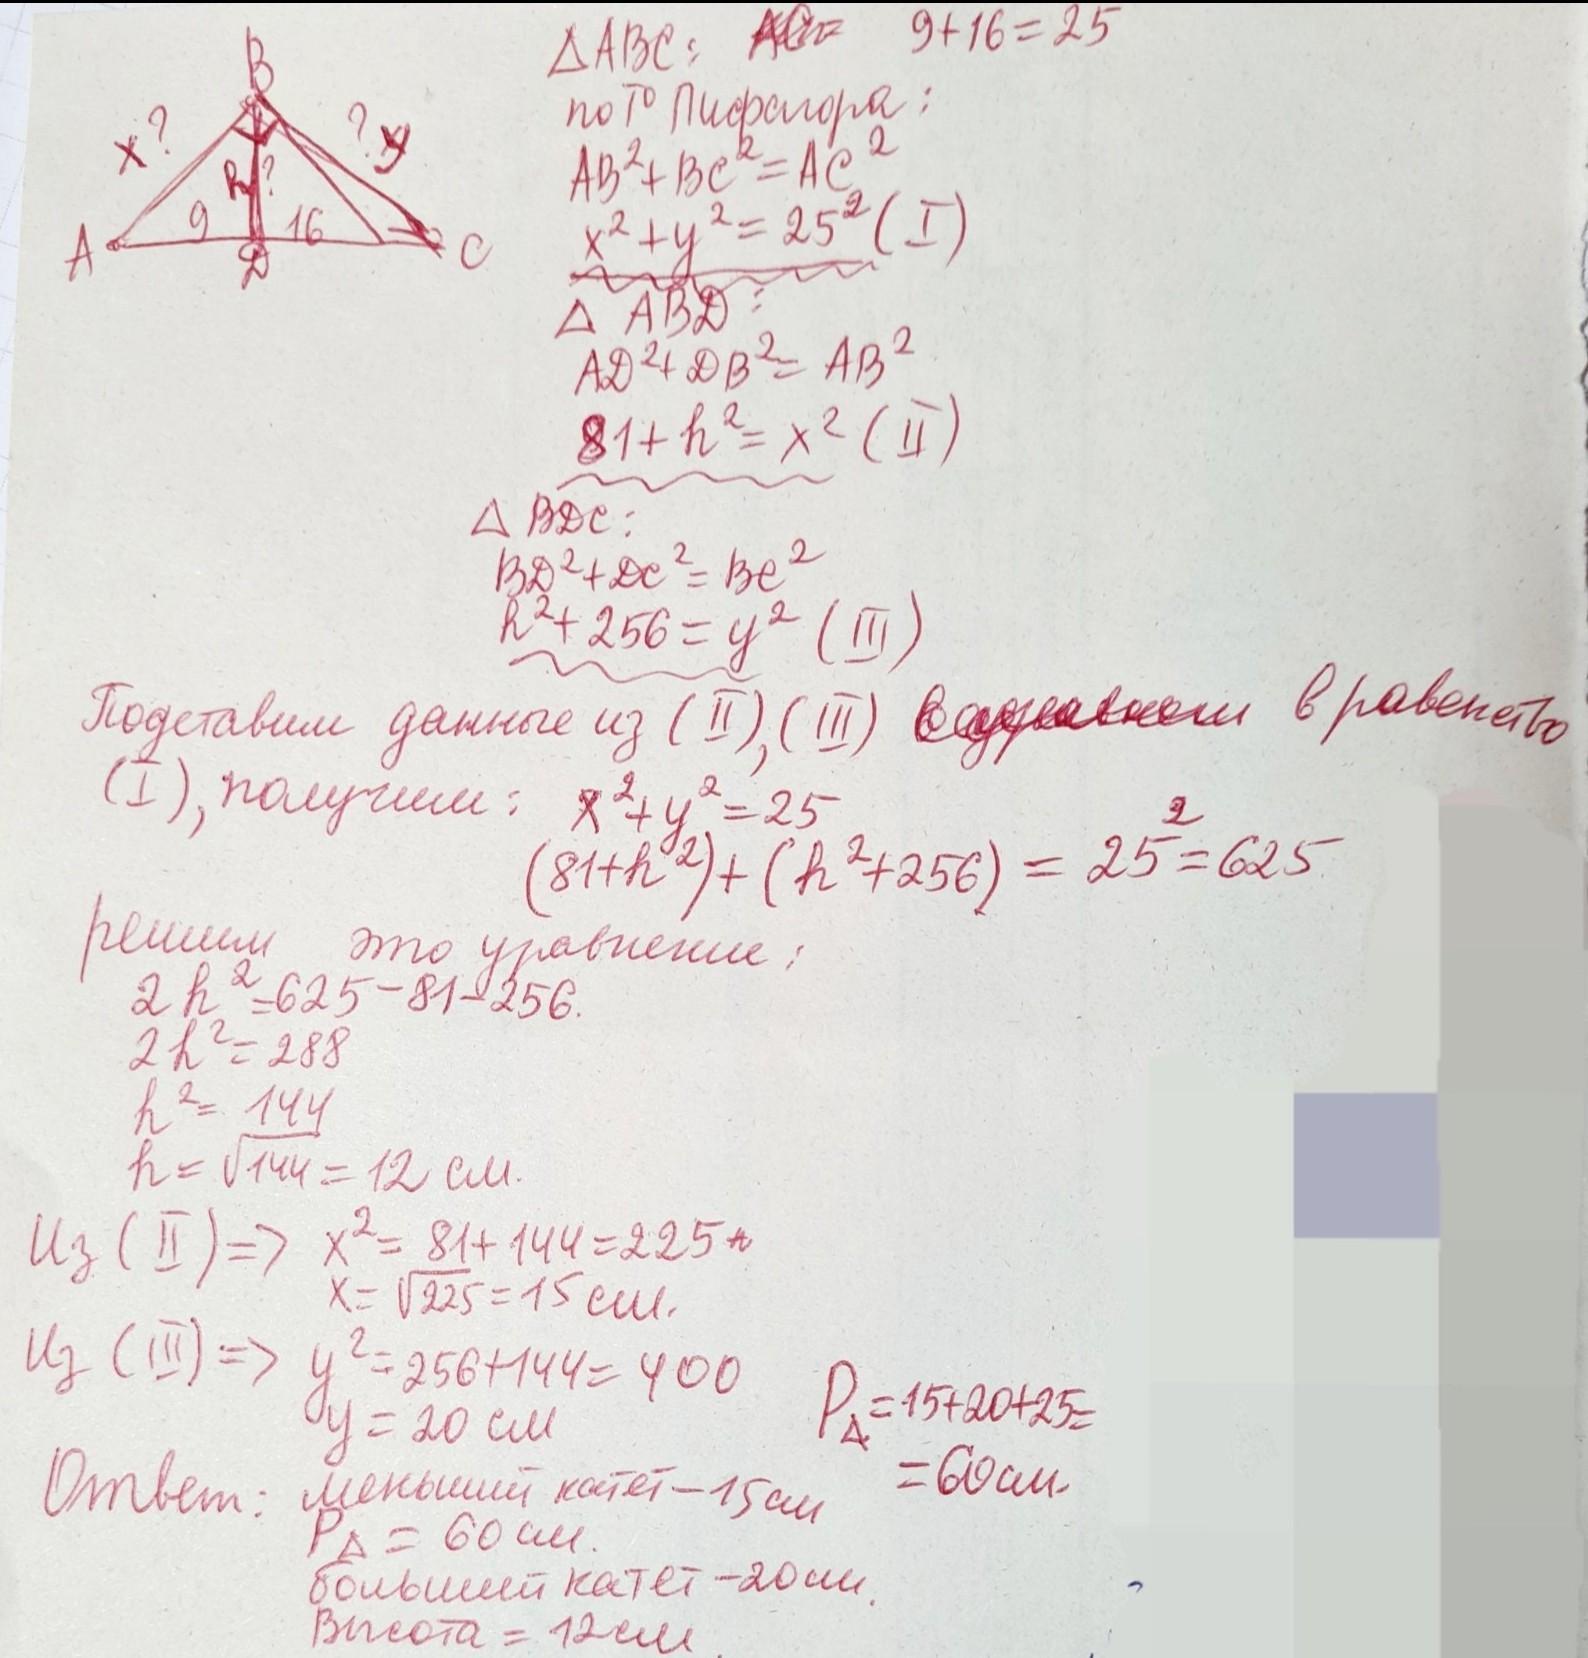 B
x ?
? y
h ?
9
16
A
D
C
△ABC: 9+16=25
по Т° Пифагора:
AB²+BC²=AC²
x²+y²=25² (I)
△ ABD:
AD²+DB²=AB²
81+h²=x² (II)
△ BDC:
BD²+DC²=BC²
h²+256=y² (III)
Подставим данные из (II), (III) в равенство
(I), получим: x²+y²=25
(81+h²)+(h²+256)=25²=625
решим это уравнение:
2h²=625-81-256.
2h²=288
h²=144
h=√144=12 см.
Из (II)=> x²=81+144=225
x=√225=15 см.
Из (III)=> y²=256+144=400
y=20 см
P△=15+20+25=
=60 см.
Ответ: меньший катет-15 см
P△=60 см.
больший катет-20 см.
Высота=12 см.